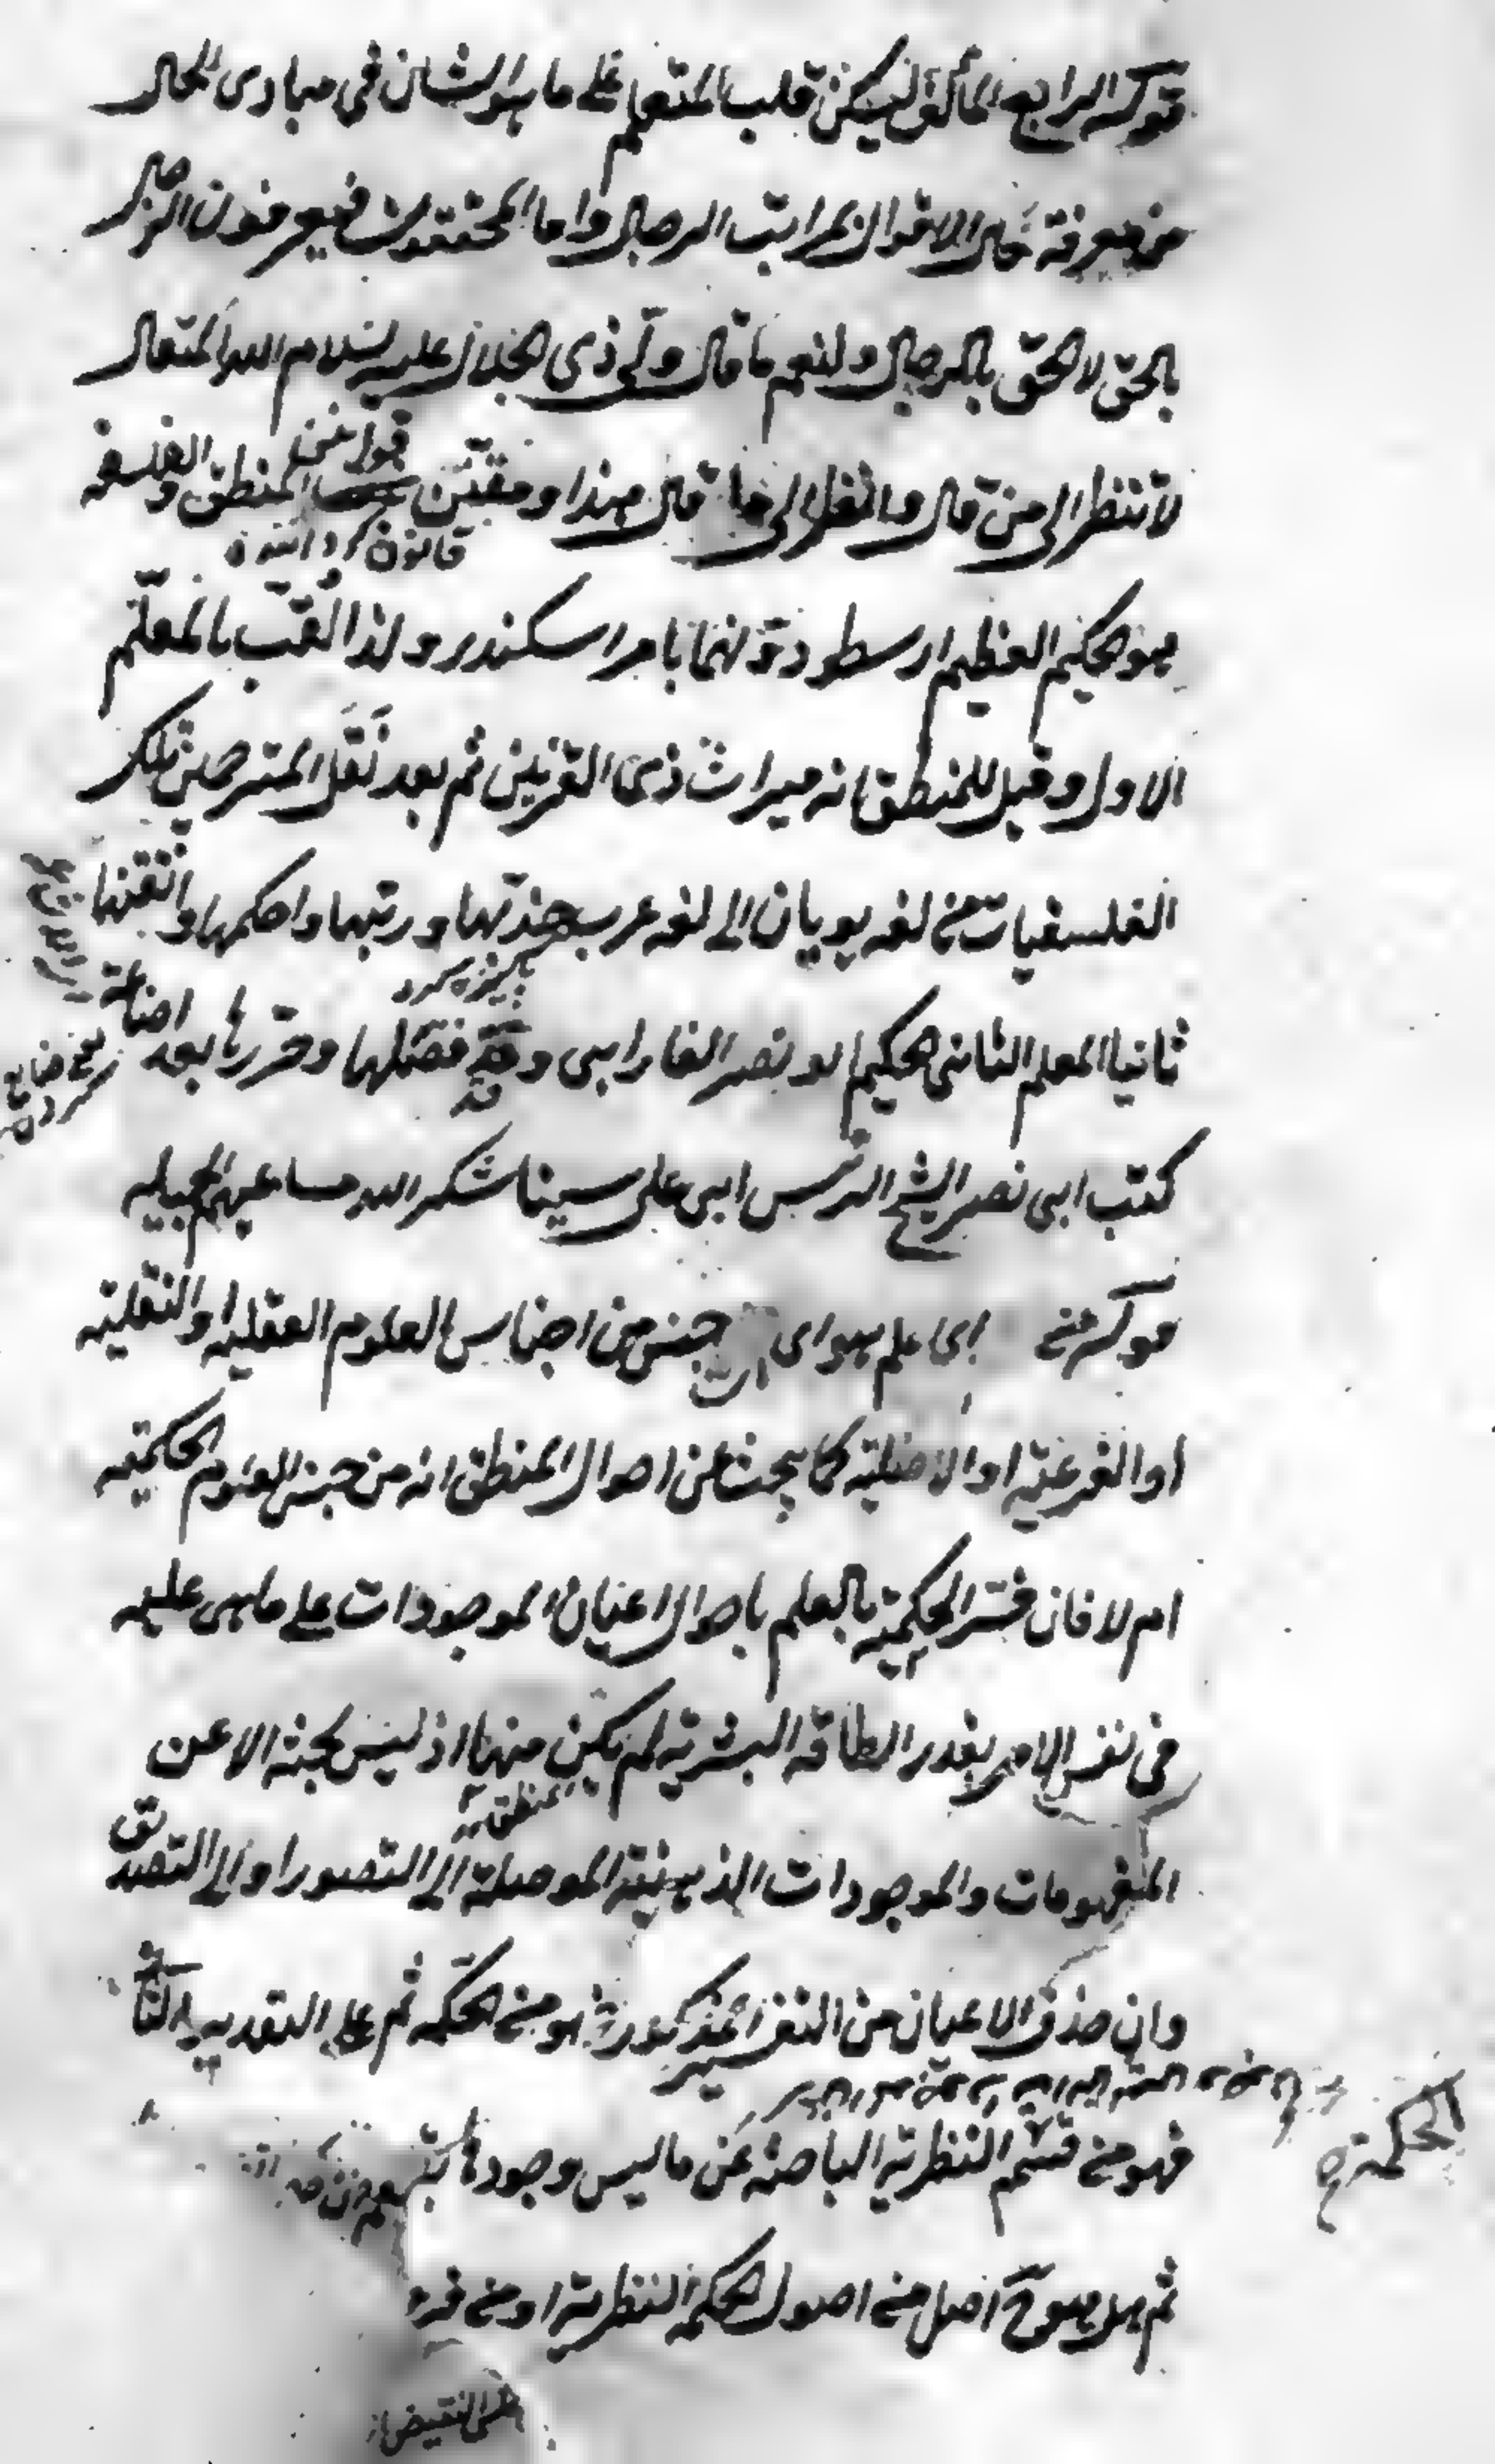 قوله الرابع المؤلف ليسكن قلب المتعلم على ما هو الشان فى مبادى الحال
من معرفة حال الاقوال بمراتب الرجال واما المحققون فيعرفون الرجال
بالحق لا الحق بالرجال ولنعم ما قال ولى ذى الجلال عليه سلام الله المتعال
لا تنظر الى من قال وانظر الى ما قال هذا ومقنن قوانين المنطق والفلسفه
قانون
هو الحكيم العظيم ارسطو دونها بامر اسكندر ولذا لقب بالمعلم
الاول وقيل للمنطق انه ميراث ذى القرنين ثم بعد نقل المترجمين تلك
الفلسفيات من لغه يونان الى لغه عرب هذبها ورتبها واحكمها واتقنها
پاكيزه كرد
ثانيا المعلم الثانى الحكيم ابو نصر الفارابى وقد فصلها وحررها بعد اضاعة
ضايع كردن
كتب ابى نصر الشيخ الرئيس ابى على سينا شكر الله مساعيهم الجميله
قوله من اى علم هو اى جنس من اجناس العلوم العقليه او النقليه
او الفرعيه او الاصليه كما يبحث عن احوال المنطق انه من جنس العلوم الحكميه
ام لا فان فسر الحكمة بالعلم باحوال اعيان الموجودات على ما هى عليه
فى نفس الامر بقدر الطاقه البشريه لم يكن منها اذ ليس بحثه الا عن
منطق
المفهومات والموجودات الذهنية الموصلة الى التصور او الى التصديق
وان حذف الاعيان من التفسير المذكور فهو من الحكمه ثم على التقدير الثانى
الحكمة
فهو من قسم النظرية الباحثه عن ما ليس وجودها
ثم هل هو ح اصل من اصول الحكمة النظرية او من فروع